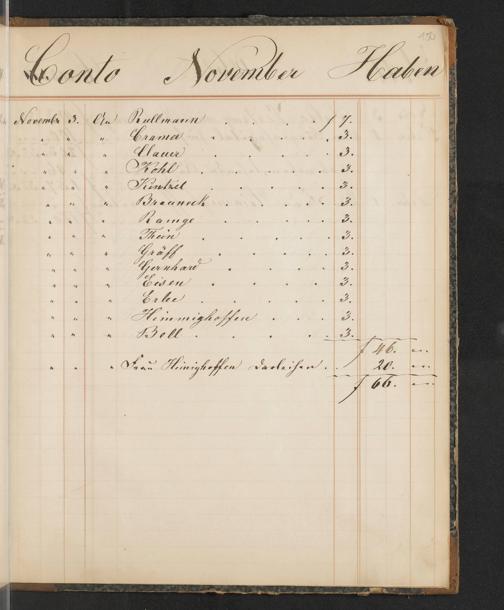 Conto November Haben
November 3. An Rullmann . . . . f 7.
" " " Cramer . . . . . 3.
" " " Clauer . . . . . 3.
" " " Kohl . . . . . 3.
" " " Künkel . . . . 3.
" " " Brauneck . . . . 3.
" " " Ramge . . . . 3.
" " " Thein . . . . . 3.
" " " Gräff . . . . . 3.
" " " Gernhard . . . . 3.
" " " Eisen . . . . . 3.
" " " Erlee . . . . . 3.
" " " Himmighoffen . . . 3.
" " " Boll . . . . . 3.
f 46. "
" " " Frau Himighoffen Darleihen . . 20. "
f 66. "